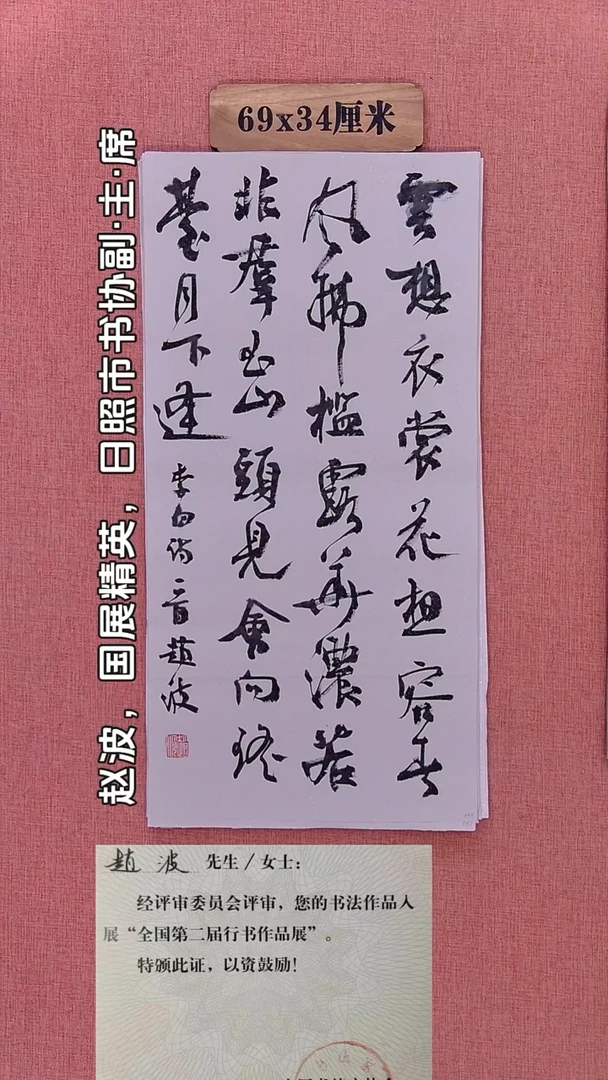 69x34厘米
赵波，国展精英，日照市书协副·主·席
雲想衣裳花想容春
风拂檻露華濃若
非羣玉山頭見會向瑤
臺月下逢
李白詩一首趙波
趙波 先生/女士：
经评审委员会评审，您的书法作品入
展“全国第二届行书作品展”。
特颁此证，以资鼓励！